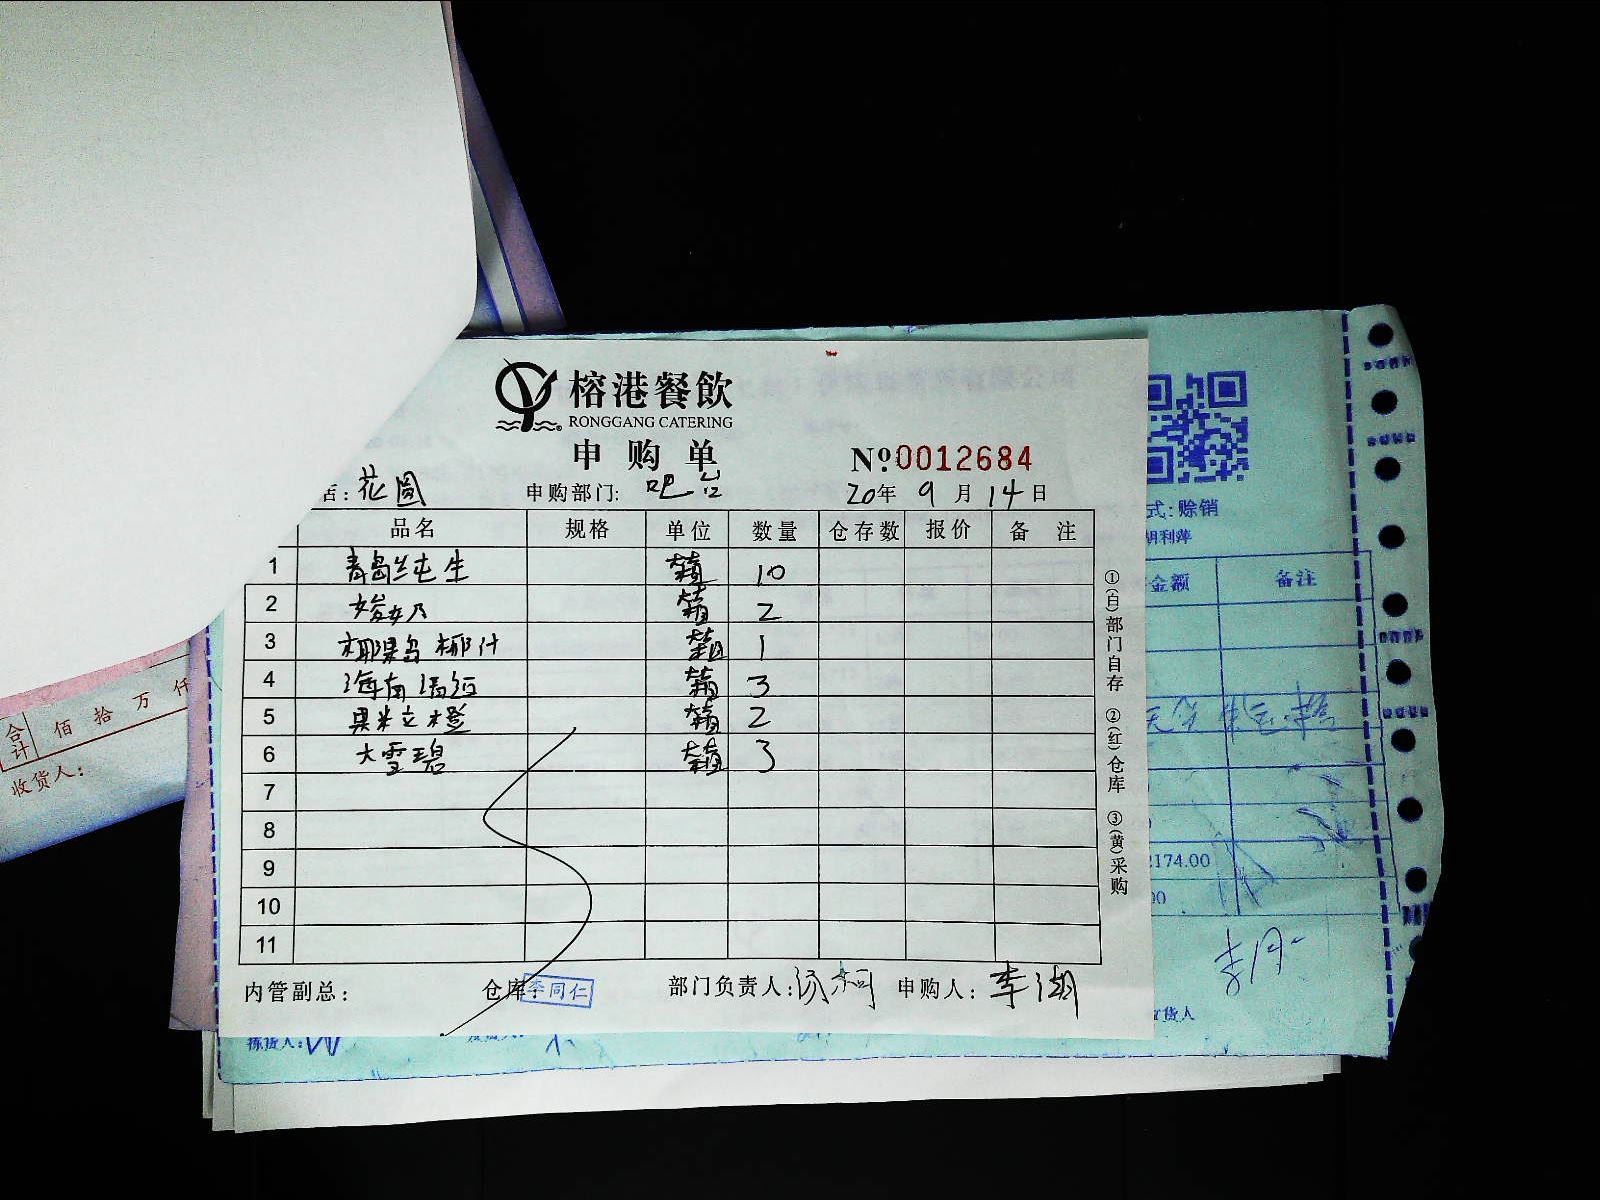 榕港餐飲
RONGGANG CATERING
申购单 №:0012684
店:花圆 申购部门:吧台 20年9月14日
品名 规格 单位 数量 仓存数 报价 备注
1 青岛纯生 箱 10
2 箱 2
3 椰果岛椰汁 箱 1
4 海南 箱 3
5 果粒橙 箱 2
6 大雪碧 箱 3
7
8
9
10
11
①(白)部门自存 ②(红)仓库 ③(黄)采购
内管副总: 仓库:李同仁 部门负责人: 申购人:李湖
式:赊销
胡利萍
金额 备注
2174.00
00
货人
拣货人:
合计 佰拾万仟
收货人: